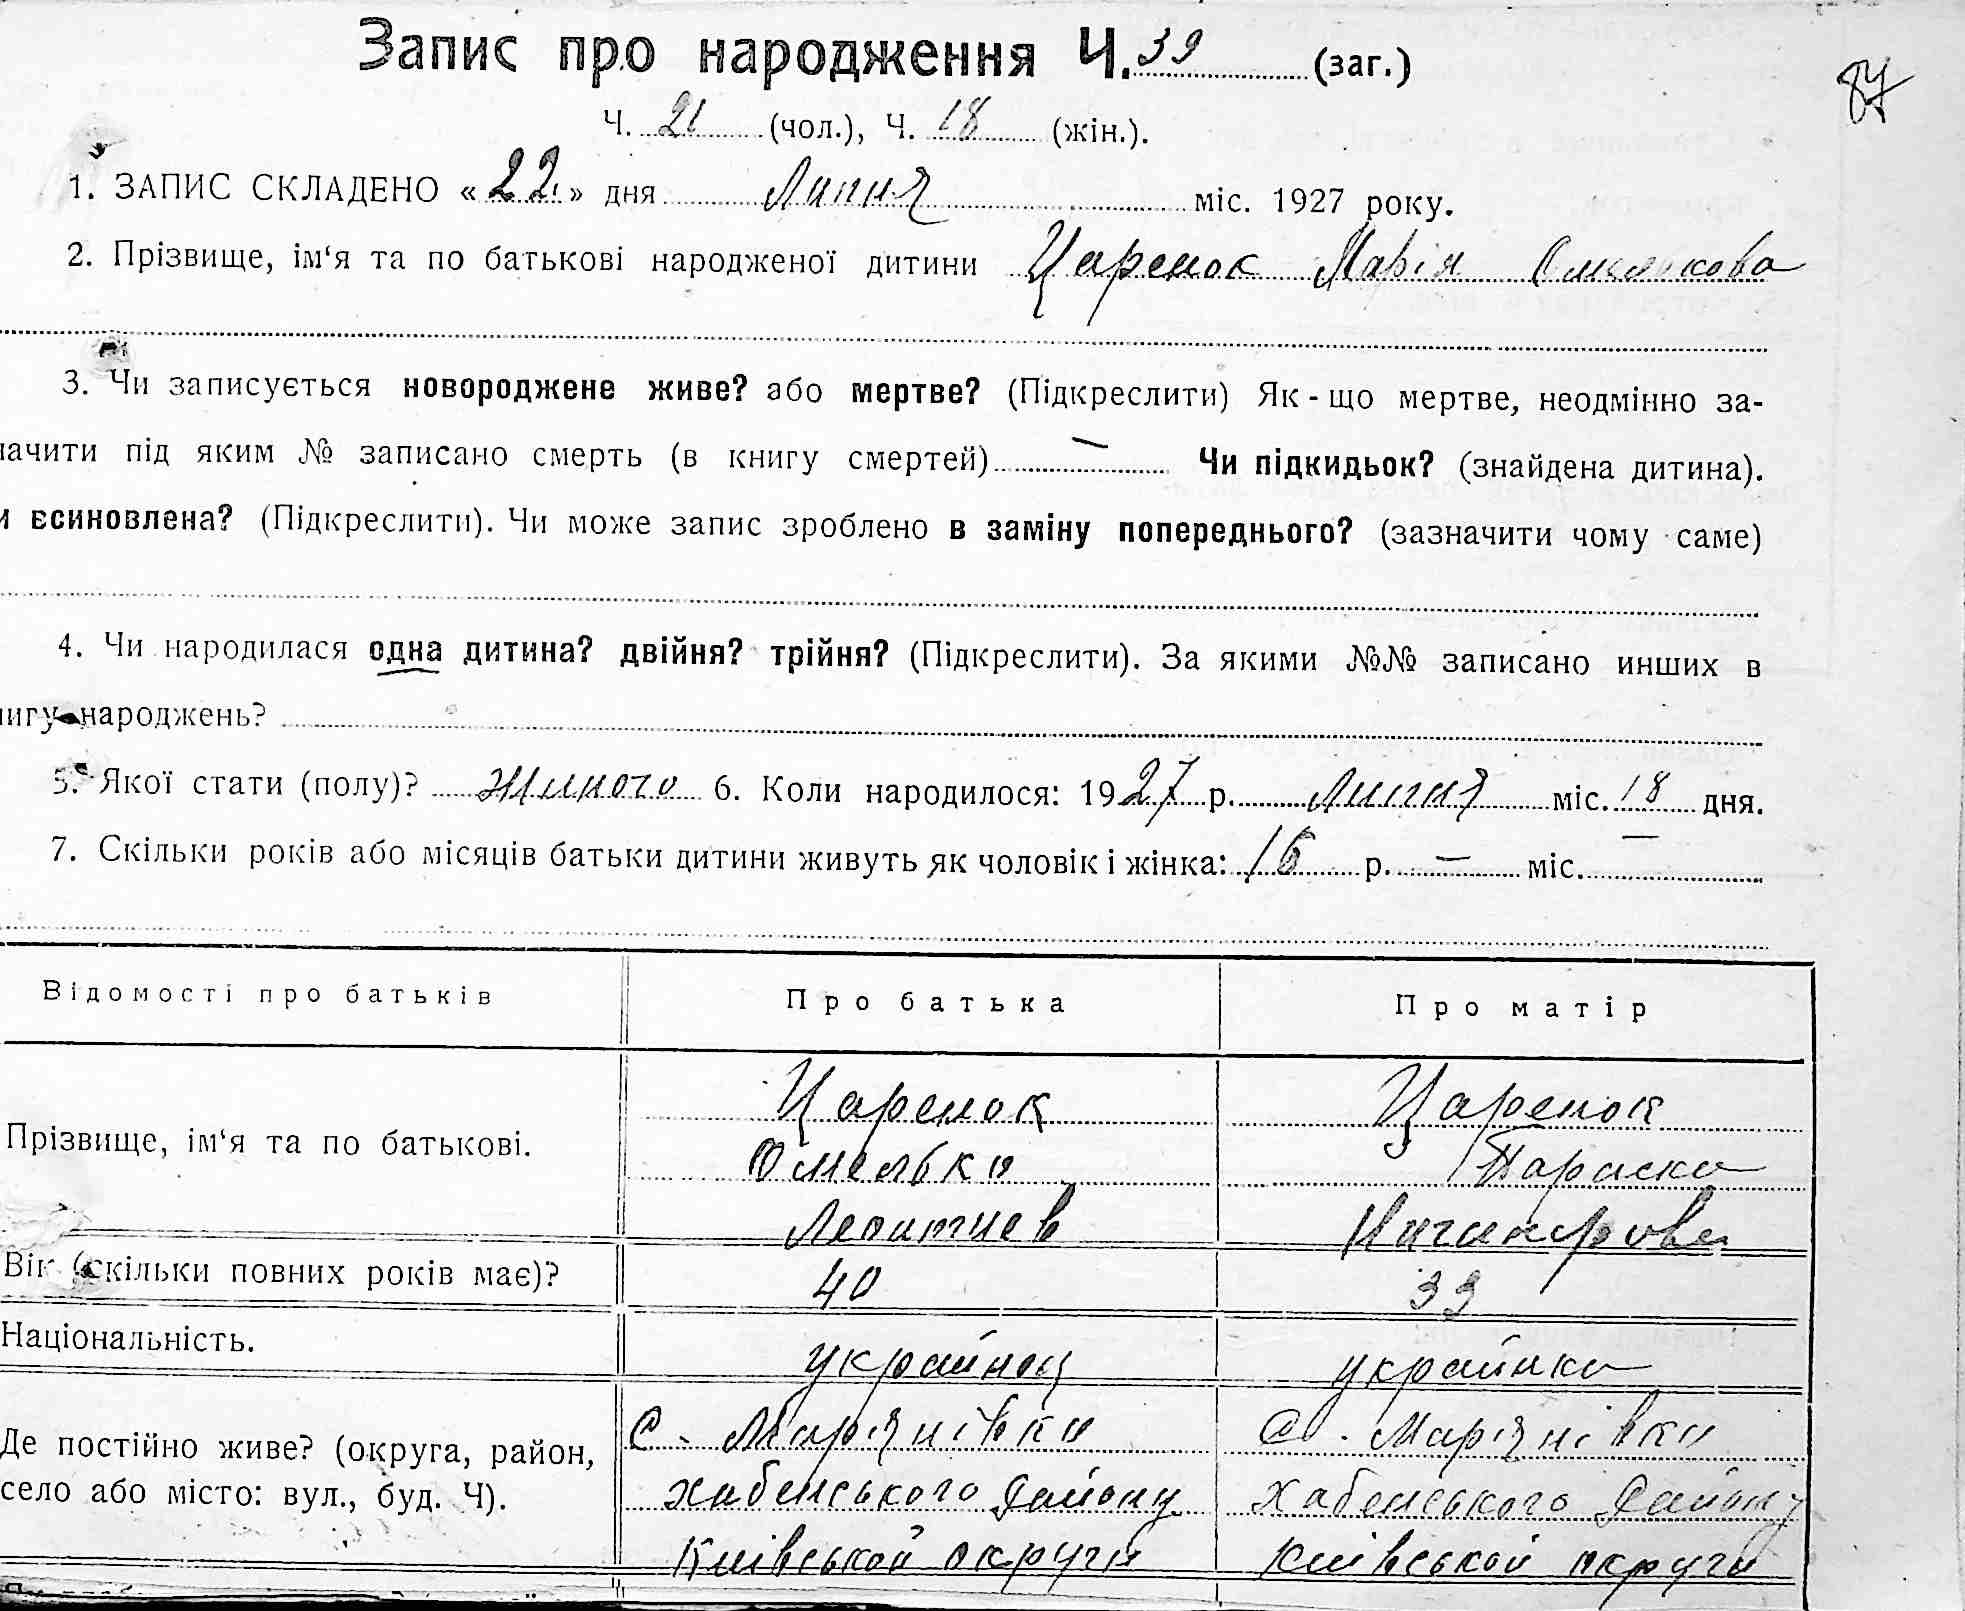 Запис про народження Ч. 39 (заг.)
87
Ч. 21 (чол.), Ч. 18 (жін.).
1. ЗАПИС СКЛАДЕНО «22» дня Липня міс. 1927 року.
2. Прізвище, ім‘я та по батькові народженої дитини Царенок Марія Омелькова
3. Чи записується новороджене живе? або мертве? (Підкреслити) Як - що мертве, неодмінно за-
начити під яким № записано смерть (в книгу смертей) — Чи підкидьок? (знайдена дитина).
и єсиновлена? (Підкреслити). Чи може запис зроблено в заміну попереднього? (зазначити чому саме)
4. Чи народилася одна дитина? двійня? трійня? (Підкреслити). За якими №№ записано инших в
нигу народжень?
5. Якої стати (полу)? жиного 6. Коли народилося: 1927 р. Липня міс. 18 дня.
7. Скільки років або місяців батьки дитини живуть як чоловік і жінка: 16 р. — міс. —
Відомості про батьків Про батька Про матір
Прізвище, ім‘я та по батькові. Царенок Царенок
Омелько Параска
Леонтиев Ничипрова
Вік (скільки повних років має)? 40 33
Національність. украйнец украйнка
Де постійно живе? (округа, район, с. Марянівка с. Марянівка
село або місто: вул., буд. Ч). Хабенського Району Хабенського Району
Київськой округи Київськой округи